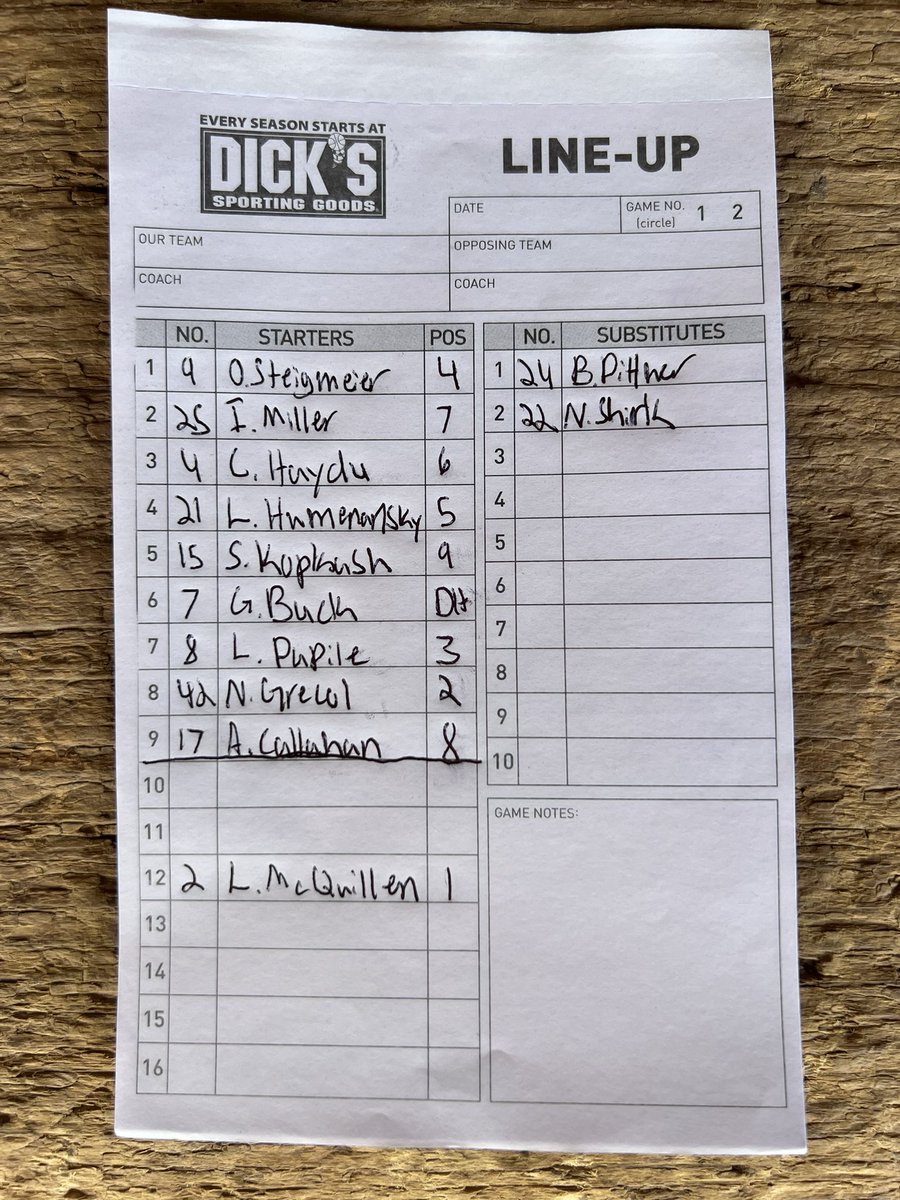 EVERY SEASON STARTS AT
DICK'S
SPORTING GOODS
LINE-UP
DATE
GAME NO. (circle) 1 2
OUR TEAM
OPPOSING TEAM
COACH
COACH
NO. STARTERS POS
1 9 O.Steigmeier 4
2 25 I. Miller 7
3 4 C. Haydu 6
4 21 L. 5
5 15 S. Kopkash 9
6 7 G. Buck DH
7 8 L. Pupile 3
8 42 N. Grecol 2
9 17 A. Callahan 8
10
11
12 2 L. McQuillen 1
13
14
15
16
NO. SUBSTITUTES
1 24 B. Pittner
2 22 N. Shirk
3
4
5
6
7
8
9
10
GAME NOTES: